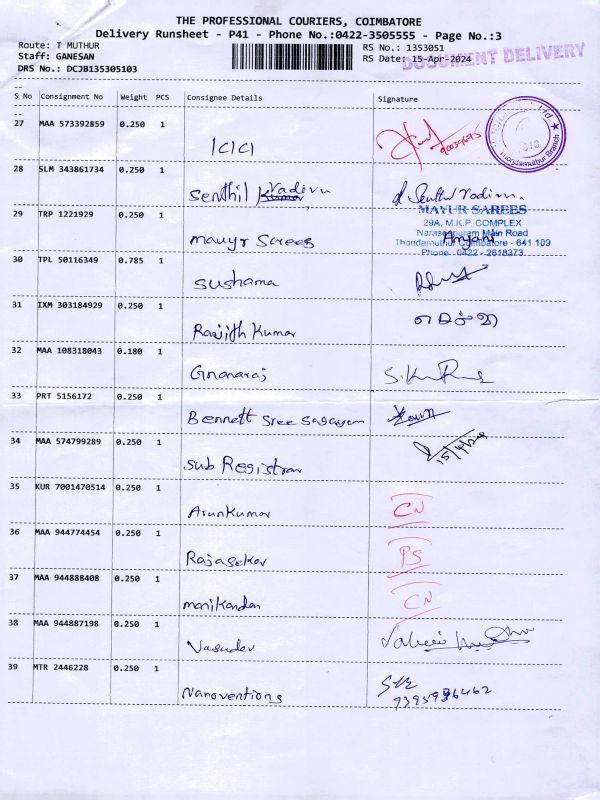 THE PROFESSIONAL COURIERS, COIMBATORE
Delivery Runsheet - P41 - Phone No.:0422-3505555 - Page No.:3
Route: T MUTHUR RS No.: 1353051
Staff: GANESAN RS Date: 15-Apr-2024
DOCUMENT DELIVERY
DRS No.: DCJB135305103
S No Consignment No Weight PCS Consignee Details Signature
27 MAA 573392859 0.250 1 ICICI
Thondamuthur Branch
28 SLM 343861734 0.250 1 Senthil Vadivu
29 TRP 1221929 0.250 1 mauyr Sarees
MAYUR SAREES
29A, M.K.P. COMPLEX
Naraseepuram Main Road
Thondamuthur Coimbatore - 641 109
Phone : 0422 - 2618373
30 TPL 50116349 0.785 1 Sushama
31 IXM 303184929 0.250 1 Ranjith Kumar
32 MAA 108318043 0.180 1 Gnanaraj
33 PRT 5156172 0.250 1 Bennett Sree Sagayam
34 MAA 574799289 0.250 1 Sub Registrar 15/4/24
35 KUR 7001470514 0.250 1 ArunKumar CN
36 MAA 944774454 0.250 1 Rajasekar PS
37 MAA 944888408 0.250 1 manikandan CN
38 MAA 944887198 0.250 1 Vasudev
39 MTR 2446228 0.250 1 Nanoventions